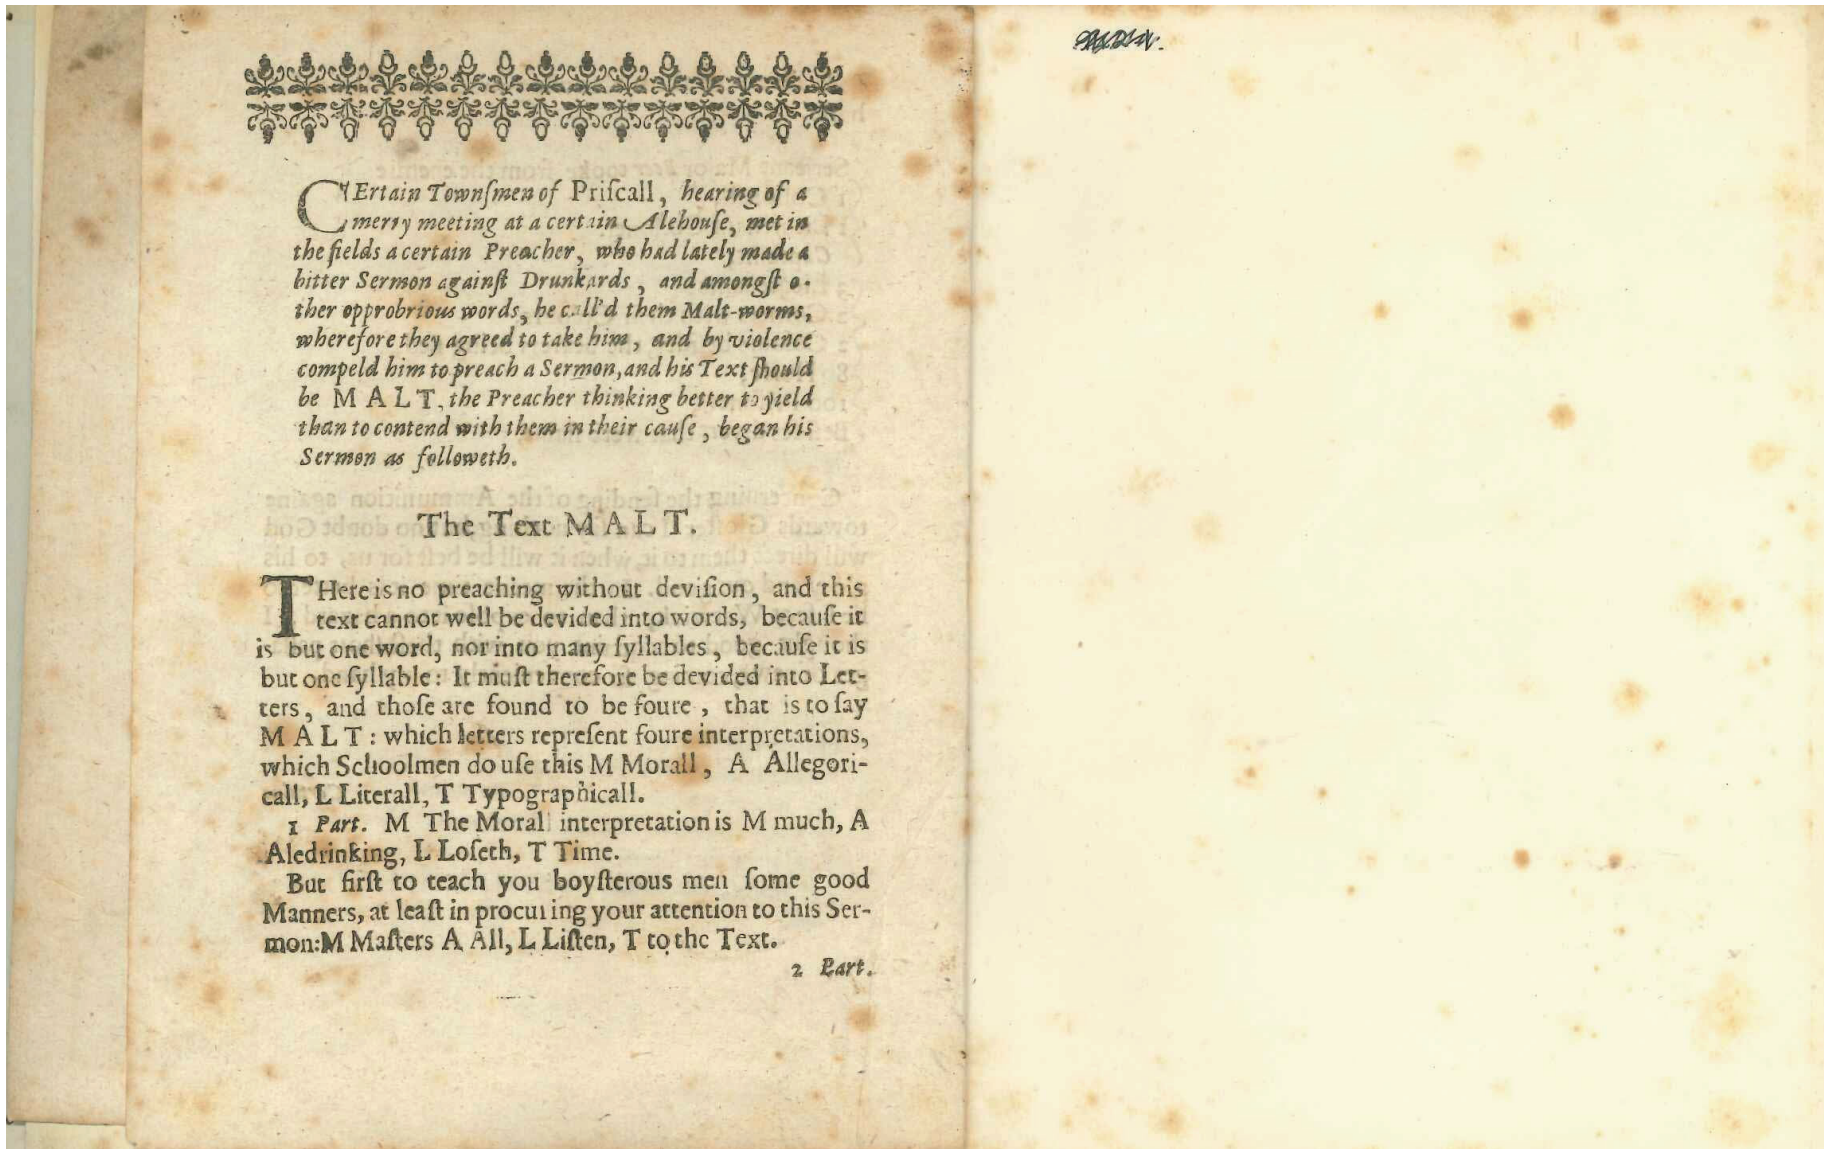 CErtain Townſmen of Priſcall, hearing of a
merry meeting at a certain Alehouſe, met in
the fields a certain Preacher, who had lately made a
bitter Sermon againſt Drunkards, and amongſt o-
ther opprobrious words, he call'd them Malt-worms,
wherefore they agreed to take him, and by violence
compeld him to preach a Sermon, and his Text ſhould
be MALT, the Preacher thinking better to yield
than to contend with them in their cauſe, began his
Sermon as followeth.
The Text MALT.
THere is no preaching without deviſion, and this
text cannot well be devided into words, becauſe it
is but one word, nor into many ſyllables, becauſe it is
but one ſyllable: It muſt therefore be devided into Let-
ters, and thoſe are found to be foure, that is to ſay
M A L T: which letters repreſent foure interpretations,
which Schoolmen do uſe this M Morall, A Allegori-
call, L Literall, T Typographicall.
1 Part. M The Morall interpretation is M much, A
Aledrinking, L Loſeth, T Time.
But firſt to teach you boyſterous men ſome good
Manners, at leaſt in procuring your attention to this Ser-
mon: M Maſters A All, L Liſten, T to the Text.
2 Part.